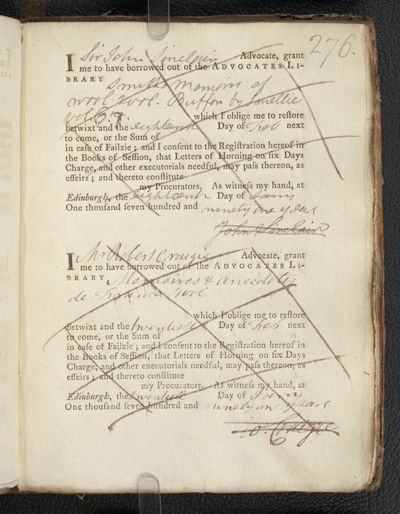 276.
I Sir John Sinclair Advocate, grant
me to have borrowed out of the ADVOCATES LI-
BRARY Smith's Memoirs of
Wool 2 vol. Buffon by Smellie
vol. 6.7. which I oblige me to reſtore
betwixt and the eighteenth Day of Feb next
to come, or the Sum of
in caſe of Failzie; and I conſent to the Regiſtration hereof in
the Books of Seſſion, that Letters of Horning on ſix Days
Charge, and other executorials needful, may paſs thereon, as
effeirs; and thereto conſtitute
my Procurators. As witneſs my hand, at
Edinburgh, the eighteenth Day of Jany
One thouſand ſeven hundred and ninety one years
John Sinclair
I Mr Robert Craigie Advocate, grant
me to have borrowed out of the ADVOCATES LI-
BRARY Memoires & Anecdotes
de France
which I oblige me to reſtore
betwixt and the twentieth Day of Feb next
to come, or the Sum of
in caſe of Failzie; and I conſent to the Regiſtration hereof in
the Books of Seſſion, that Letters of Horning on ſix Days
Charge, and other executorials needful, may paſs thereon, as
effeirs; and thereto conſtitute
my Procurators. As witneſs my hand, at
Edinburgh, the twentieth Day of Jany
One thouſand ſeven hundred and ninety one years
Ro. Craigie